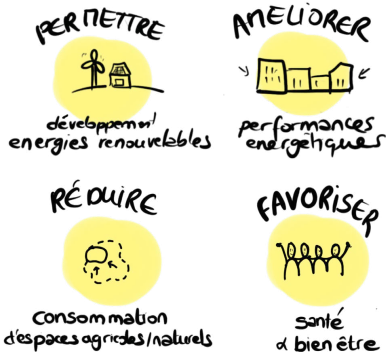 PERMETTRE
développement
energies renouvelables
AMELIORER
performances
energétiques
RÉDUIRE
Consommation
d'espaces agricoles/naturels
FAVORISER
santé
& bien être